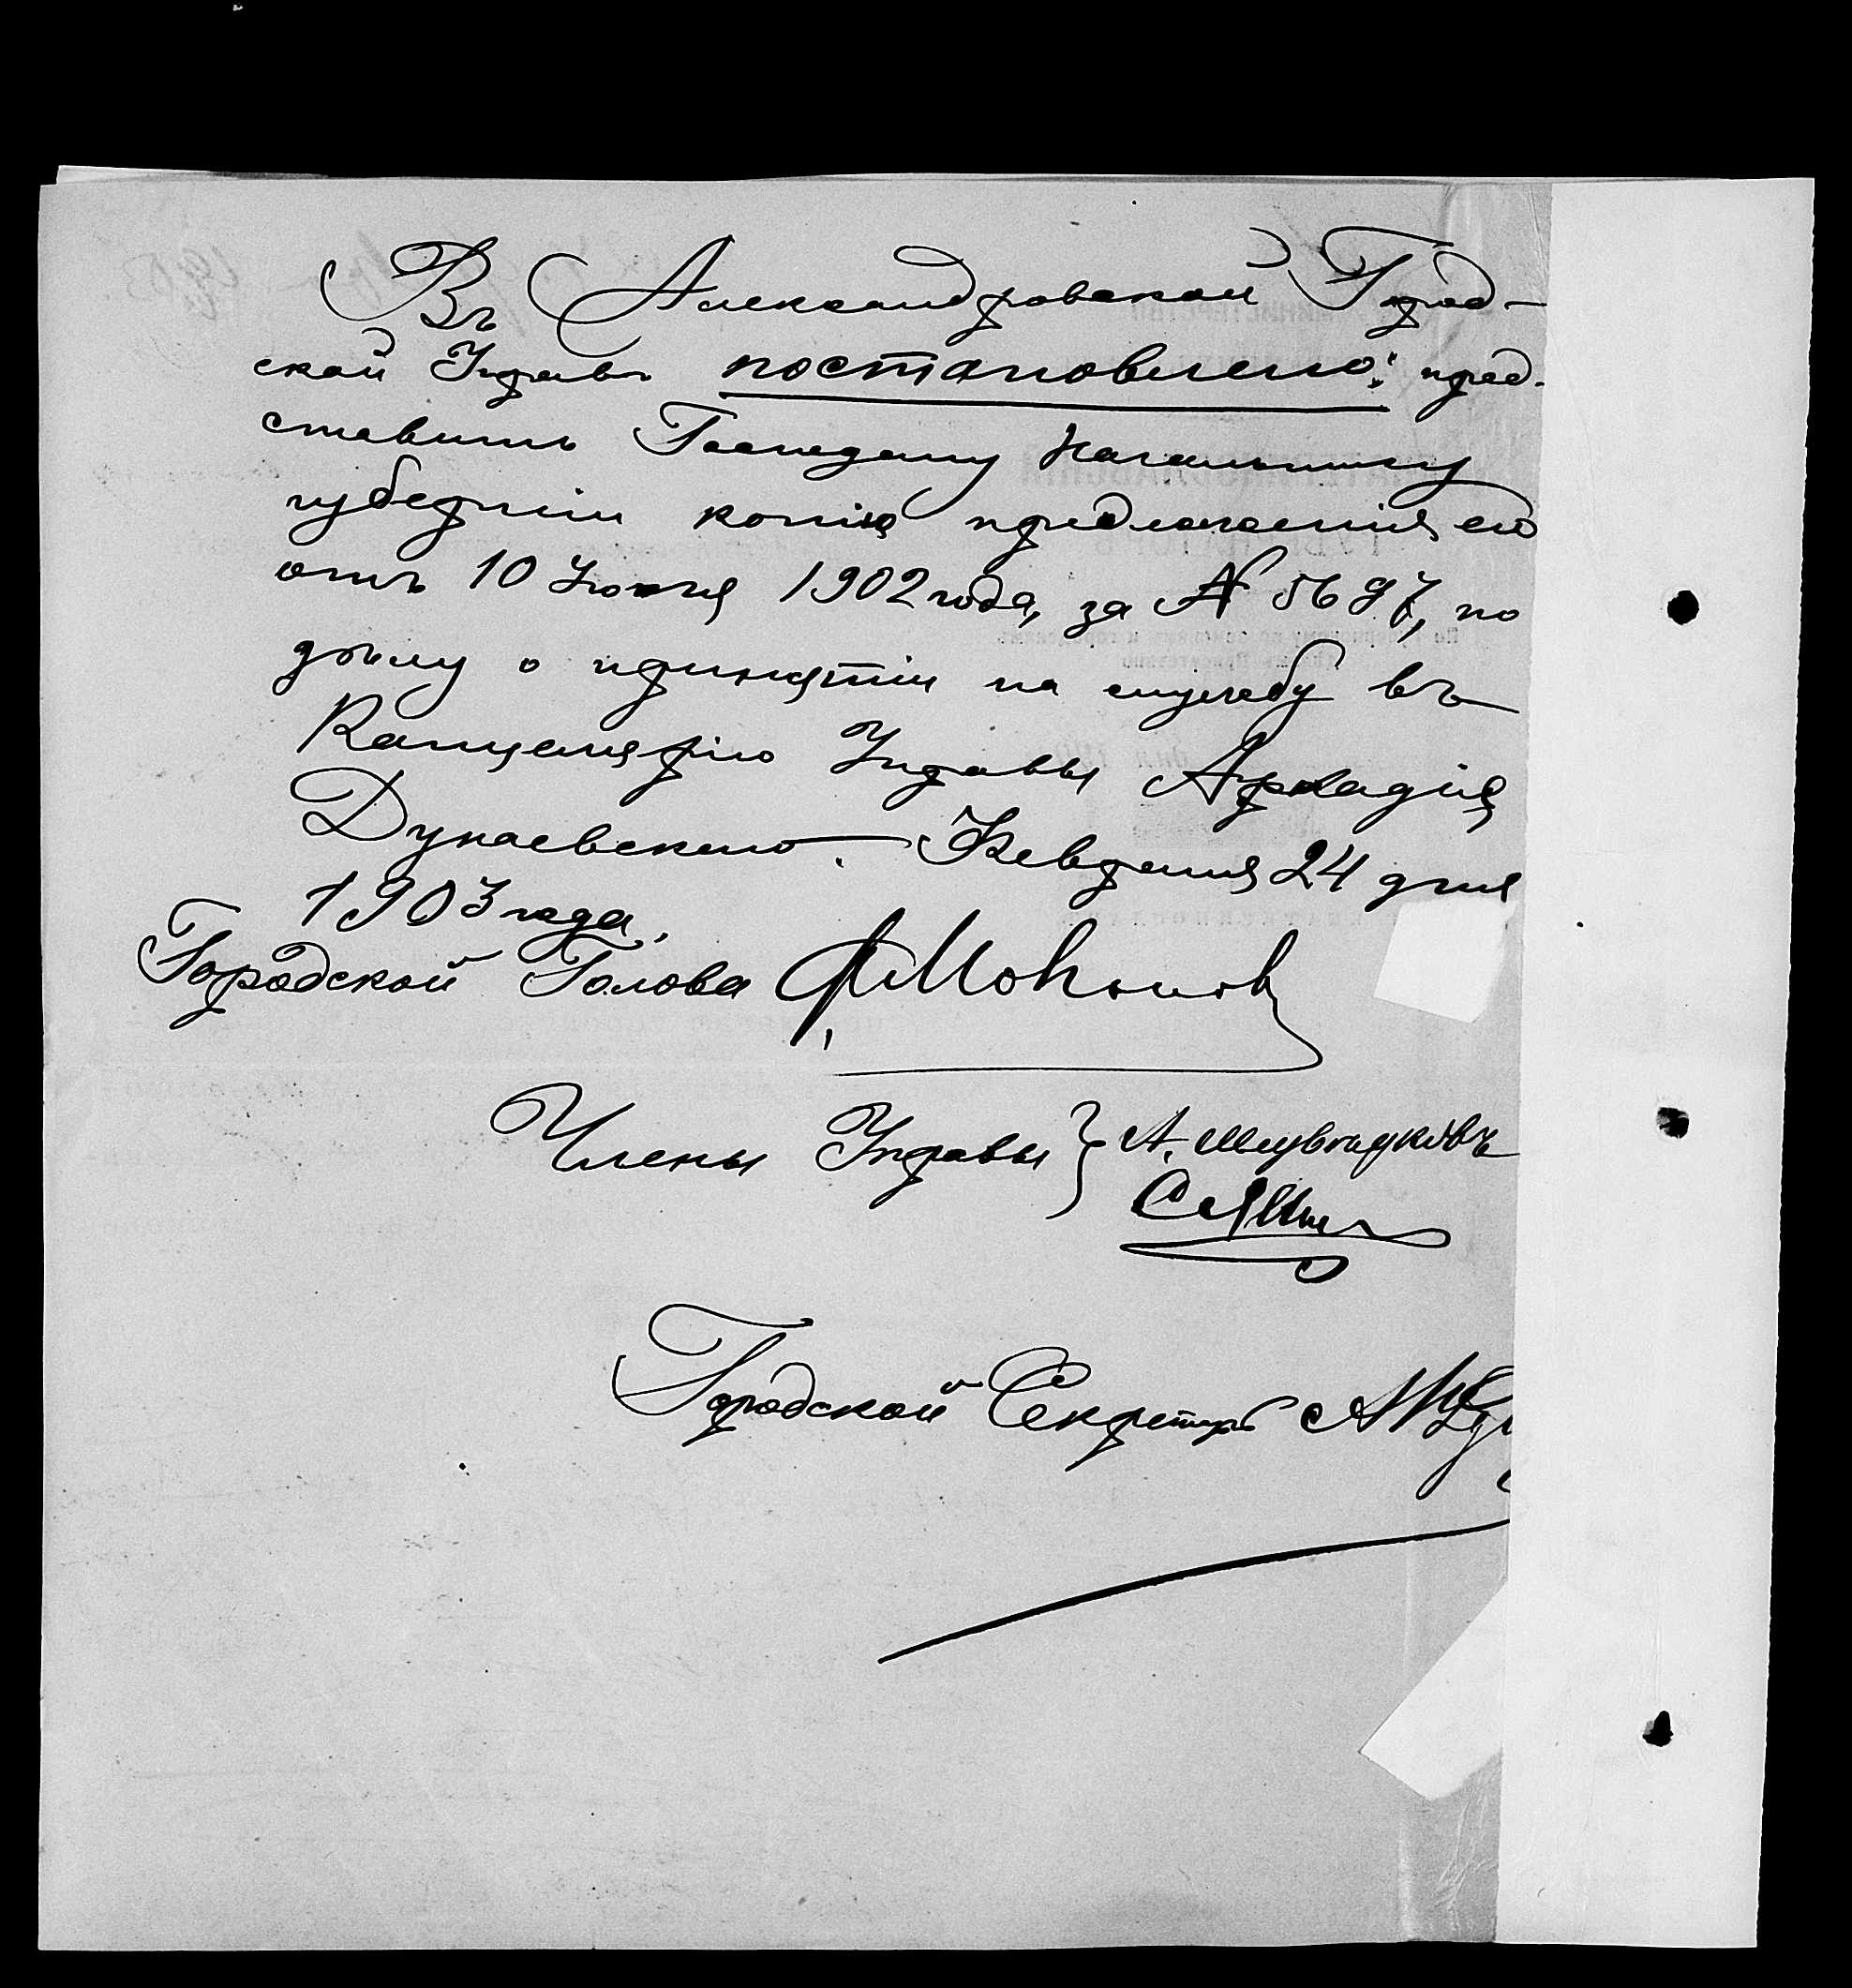 Въ Александровской Город-
ской Управѣ постановлено: пред-
ставить Господину Начальнику
губерніи копію предложенія его
отъ 10 Іюня 1902 года, за № 5697, по
дѣлу о принятіи на службу въ
Канцелярію Управы Аркадія
Дунаевскаго. Февраля 24 дня
1903 года.
Городской Голова Ф. Мовчановъ
Члены Управы } А.
Городской Секретарь